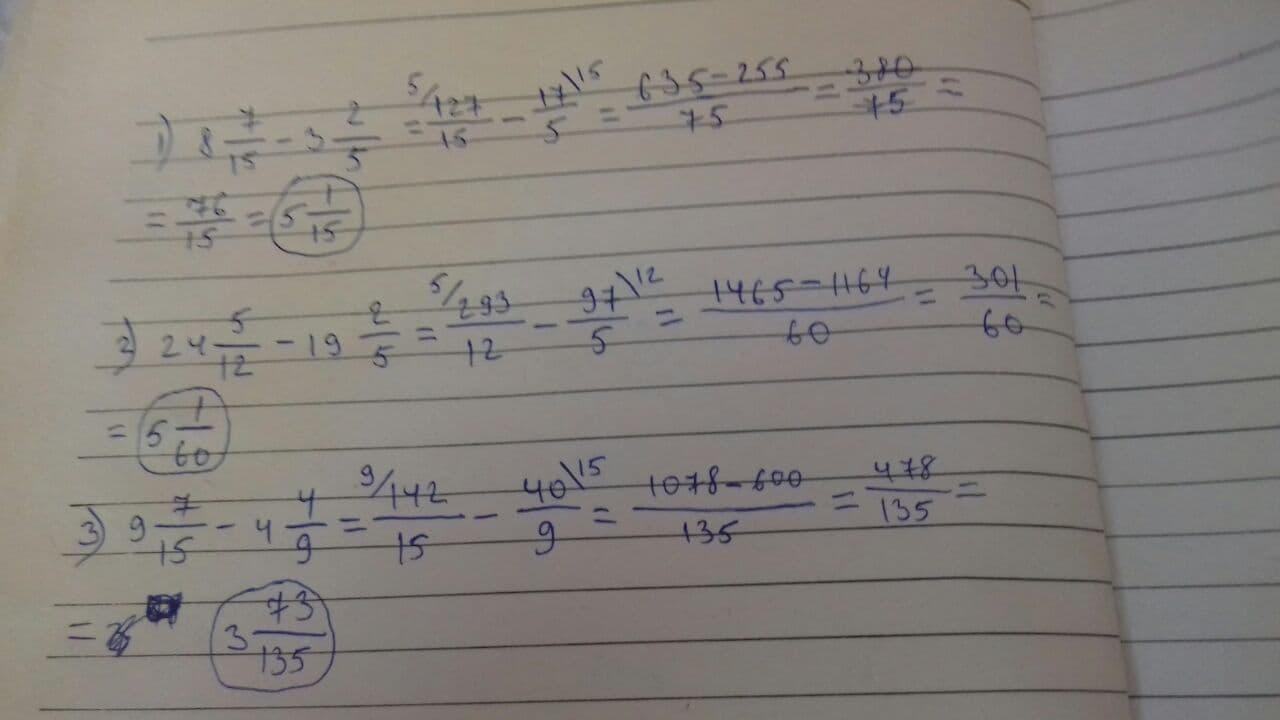 1) 8 7/15 - 3 2/5 = 5/ 127/15 - 17/5 \15 = 635-255/75 = 380/75 =
= 76/15 = 5 1/15
2) 24 5/12 - 19 2/5 = 5/ 293/12 - 97/5 \12 = 1465-1164/60 = 301/60 =
= 5 1/60
3) 9 7/15 - 4 4/9 = 9/ 142/15 - 40/9 \15 = 1078-600/135 = 478/135 =
= 3 73/135